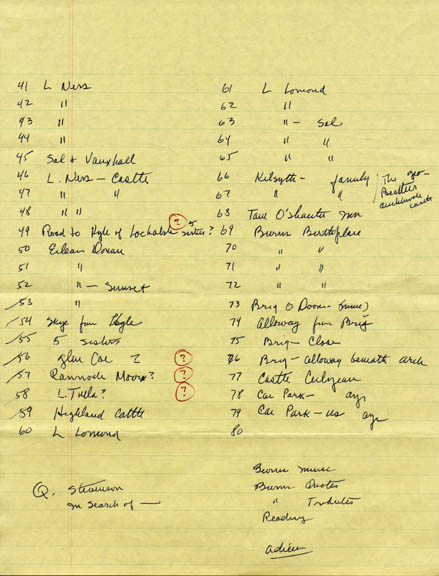 41 L Ness
42 "
43 "
44 "
45 Sal & Vauxhall
46 L. Ness - Castle
47 " "
48 " "
49 Road to Kyle of Lochalsh 5 sisters? ?
50 Eilean Donan
51 "
52 " - sunset
53 "
54 Skye from Kyle
55 5 sisters
56 Glen Coe ? ?
57 Rannoch Moor? ?
58 L. Tulla? ?
59 Highland Cattle
60 L Lomond
Q. Stevenson
In Search of —
61 L Lomond
62 "
63 " - Sal
64 " "
65 " "
66 Kilsyth - family
67 " "
The
Beatties
68 Tam O'Shanter Inn
69 Burns Birthplace
70 " "
71 " "
72 " "
73 Brig O Doon -
74 Alloway from Brig
75 Brig - Close
76 Brig - Alloway beneath arch
77 Castle Culzean
78 Car Park - Ayr
79 Car Park - us Ayr
80
Burns Music
Burns Quotes
" Tributes
Reading
adieu